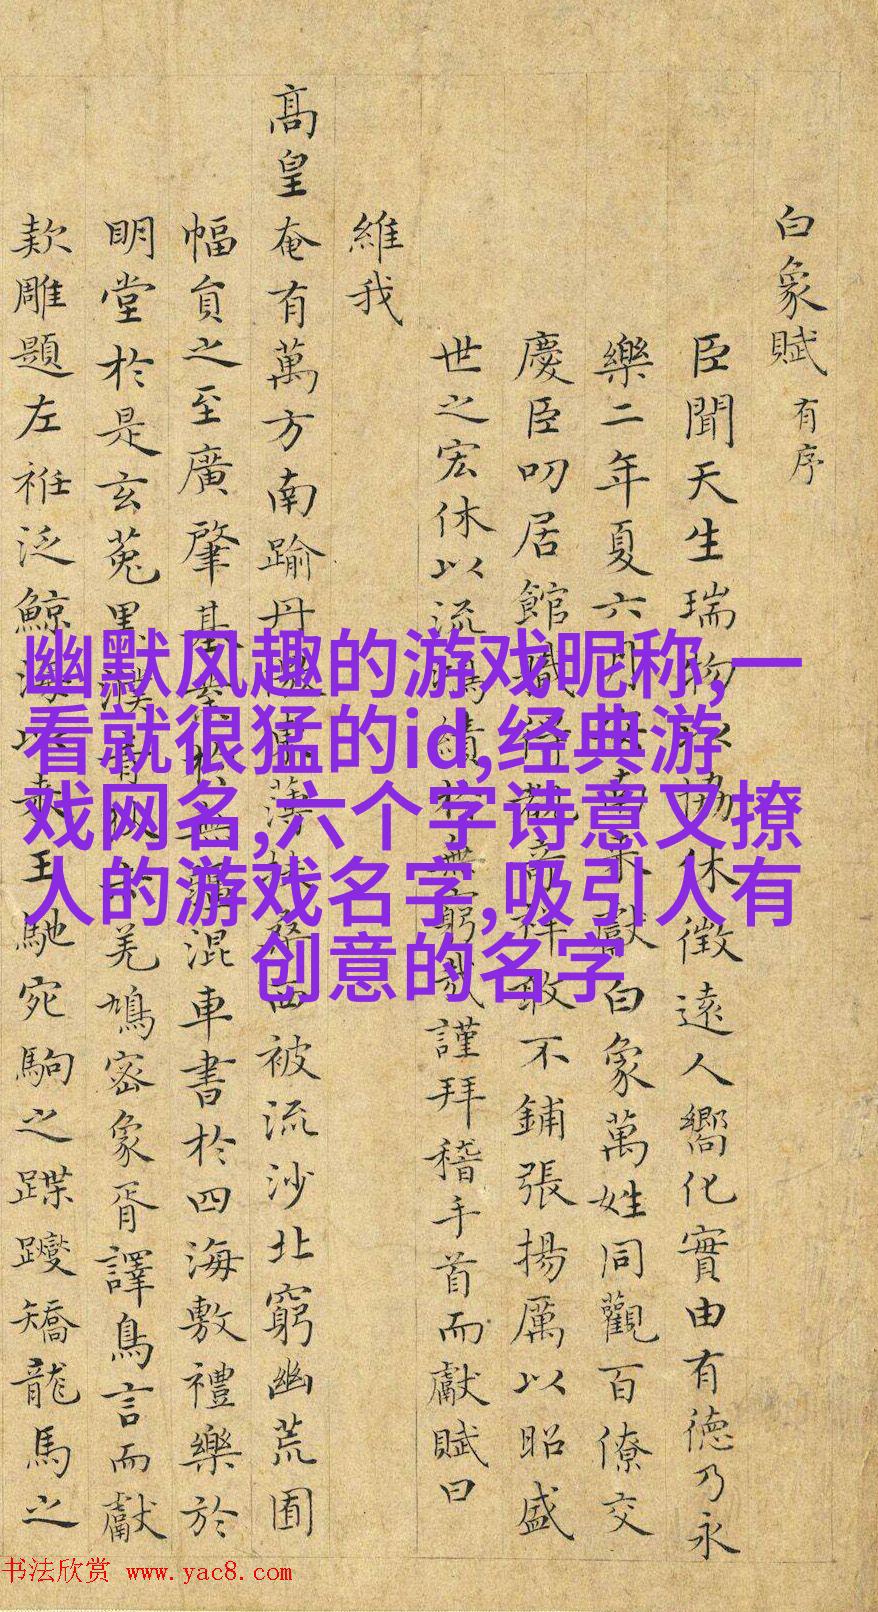 白象賦 有序
臣聞天生瑞物以協休徵遠人嚮化實由有德乃永
樂二年夏六月南來獻白象萬姓同觀百僚交
慶臣叨居館職奇祥敢不鋪張揚厲以昭盛
世之宏休以流鴻績於無窮哉謹拜稽手首而獻賦曰
維我
髙皇奄有萬方南踰丹徼東薄扶桑西被流沙北窮幽荒囿
幅員之至廣肇基於無疆混車書於四海敷禮樂於
明堂於是玄菟黑濮羌鳩密象胥譯鳥言而獻
欵雕題左袵泛鯨海以來王馳宛駒之蹀躞矯龍馬之
幽默风趣的游戏昵称,一
看就很猛的id,经典游
戏网名,六个字诗意又撩
人的游戏名字,吸引人有
创意的名字
书法欣赏 www.yac8.com